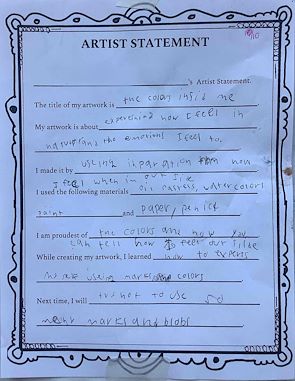 ARTIST STATEMENT
's Artist Statement.
The title of my artwork is the colors inside me
My artwork is about expereining how I feel in
and the emotions I feel to.
I made it by useing inparation from how
I feel when im out
I used the following materials oil pastels, water colors
paint and paper, pencil
I am proudest of the colors and how you
can tell how I feel
While creating my artwork, I learned how to express
my art useing marks and colors
Next time, I will try not to use so
many marks and blobs